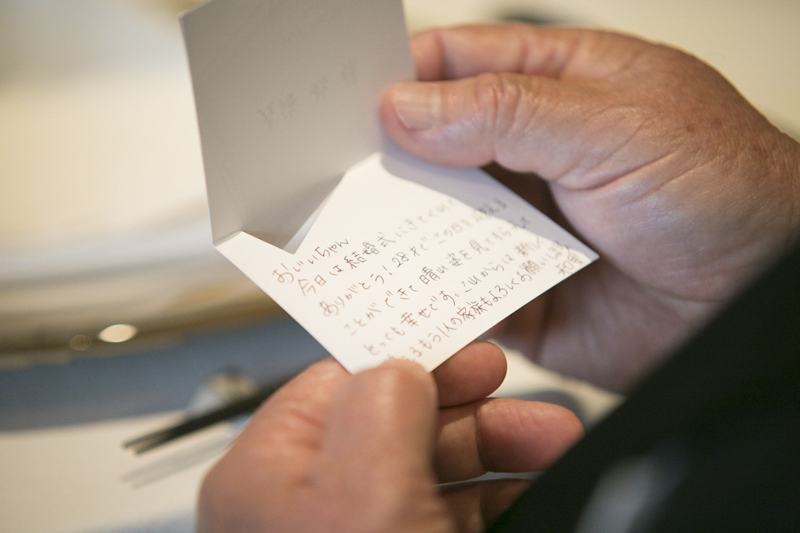 おじいちゃん
今日は結婚式にきてくれて
ありがとう！28才でこの日を迎える
ことができて晴れ姿を見てもらえて
とっても幸せです。これからは新しい
もう1人の家族もよろしくお願いします